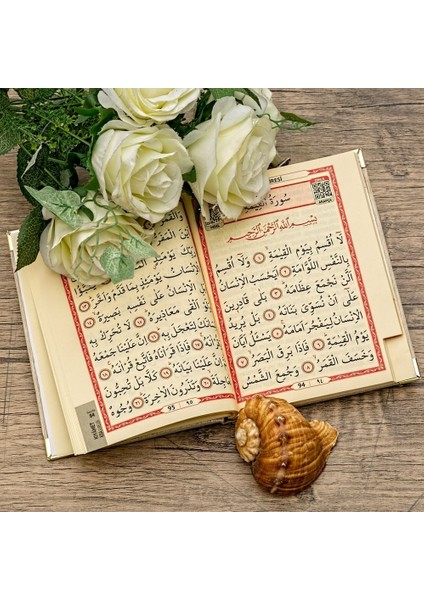 RESİ
سُورَةُ الْقِيٰمَةِ
بِسْمِ اللّٰهِ الرَّحْمٰنِ الرَّحِيمِ
لَا اُقْسِمُ بِيَوْمِ الْقِيٰمَةِ ﴿١﴾ وَلَا اُقْسِمُ
بِالنَّفْسِ اللَّوَّامَةِ ﴿٢﴾ اَيَحْسَبُ الْاِنْسَانُ
اَلَّنْ نَجْمَعَ عِظَامَهُ ﴿٣﴾ بَلٰى قَادِرِينَ
عَلٰى اَنْ نُسَوِّيَ بَنَانَهُ ﴿٤﴾ بَلْ يُرِيدُ
الْاِنْسَانُ لِيَفْجُرَ اَمَامَهُ ﴿٥﴾ يَسْئَلُ اَيَّانَ
يَوْمُ الْقِيٰمَةِ ﴿٦﴾ فَاِذَا بَرِقَ الْبَصَرُ ﴿٧﴾
وَخَسَفَ الْقَمَرُ ﴿٨﴾ وَجُمِعَ الشَّمْسُ
94 ٩٤
وَالْقَمَرُ
الْمَفَرُّ
يُنَبَّؤُا
الْاِنْسَانُ يَوْمَئِذٍ بِمَا قَدَّمَ وَاَخَّرَ ﴿١٣﴾
بَلِ الْاِنْسَانُ عَلٰى نَفْسِهِ بَصِيرَةٌ ﴿١٤﴾
اَلْقٰى مَعَاذِيرَهُ ﴿١٥﴾ لَا تُحَرِّكْ بِهِ
لِتَعْجَلَ بِهِ ﴿١٦﴾ اِنَّ عَلَيْنَا جَمْعَهُ
فَاِذَا قَرَاْنَاهُ فَاتَّبِعْ قُرْاٰنَهُ ﴿١٨﴾
اِنَّ عَلَيْنَا بَيَانَهُ ﴿١٩﴾ كَلَّا بَلْ تُحِبُّونَ
الْعَاجِلَةَ ﴿٢٠﴾ وَتَذَرُونَ الْاٰخِرَةَ ﴿٢١﴾ وُجُوهٌ
95 ٩٥